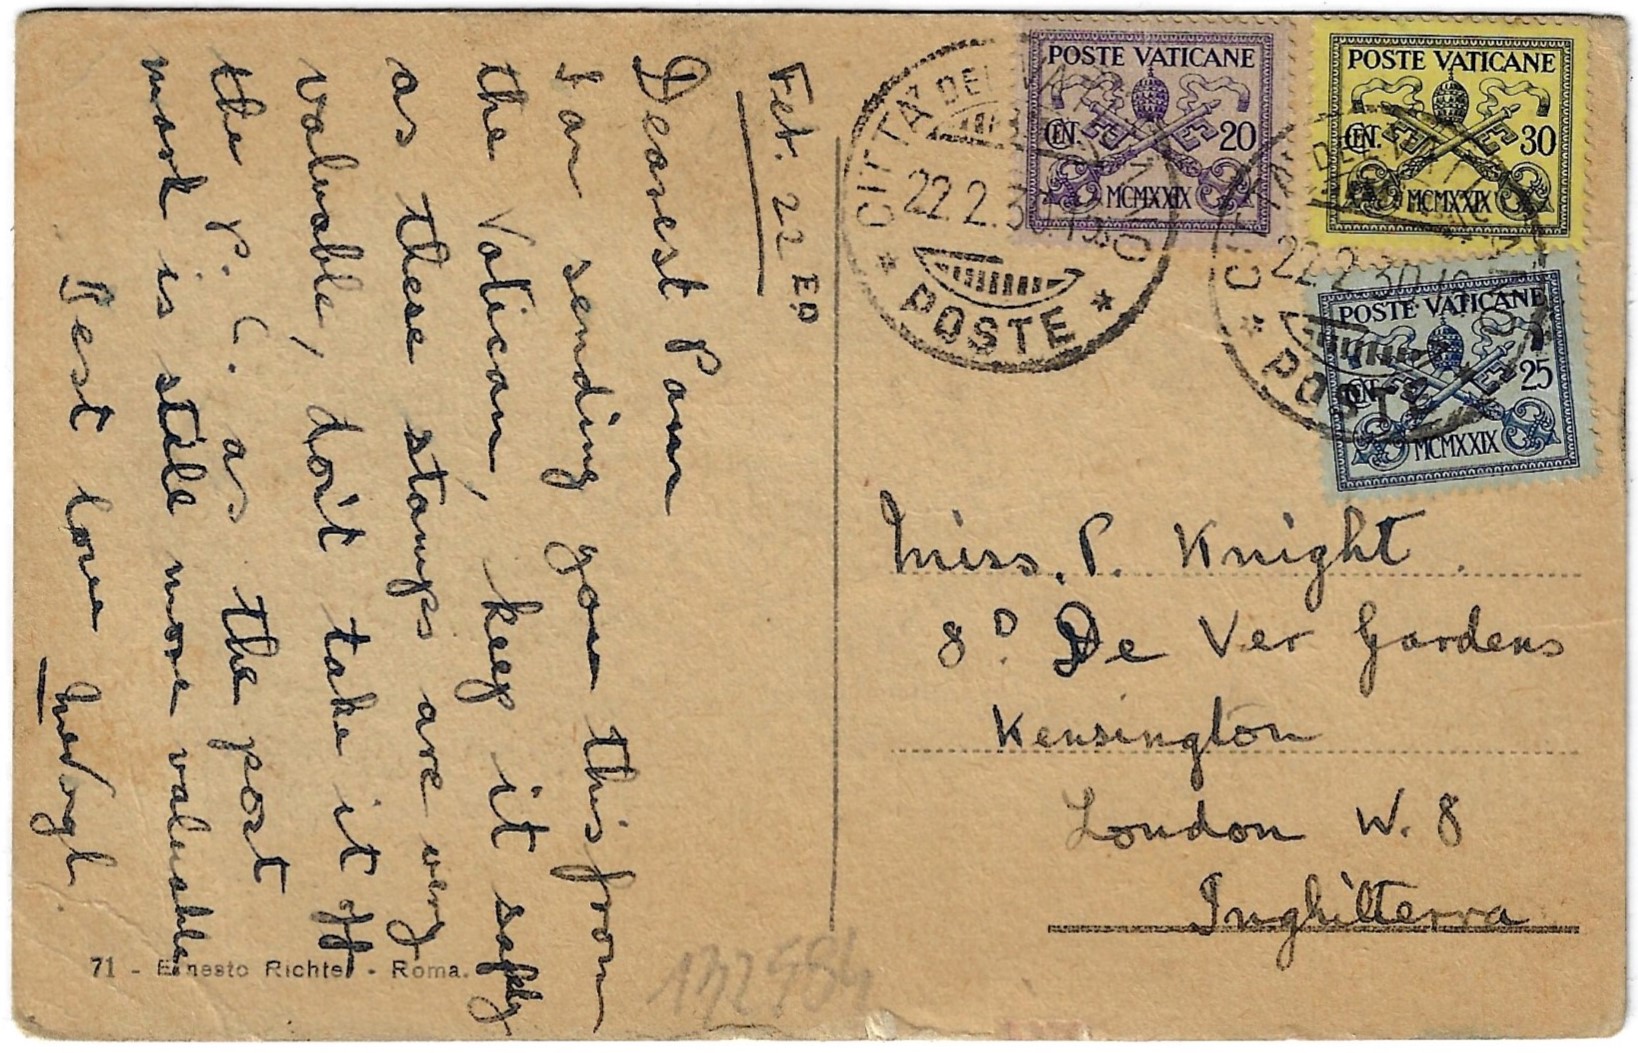 Feb. 22 ED
Dearest Pam
I am sending you this from
the Vatican, keep it safely
as these stamps are very
valuable, don't take it off
the P. C. as the post
mark is still more valuable
Best love
71 - Ernesto Richter - Roma.
CITTA DEL VATICANO
22.2.30.
* POSTE *
POSTE VATICANE
CEN. 20
MCMXXIX
POSTE VATICANE
CEN. 30
MCMXXIX
22.2.30
* POSTE *
POSTE VATICANE
CEN. 25
MCMXXIX
Miss. P. Knight
8 D. De Ver Gardens
Kensington
London W. 8
Inghilterra